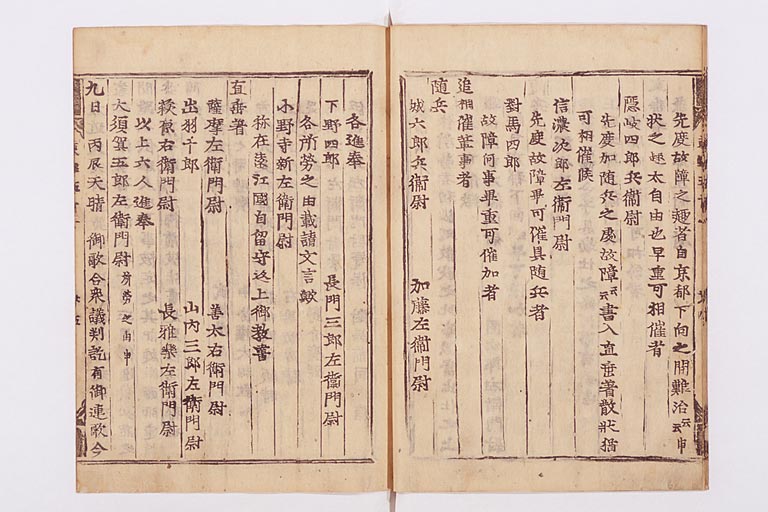 先度故障之趣者自京都下向之間難治云云申
状之趣太自由也早重可相催者
隠岐四郎兵衛尉
先度加随兵之處故障云云書入直垂著散状猶
可相催候
信濃次郎左衛門尉
先度故障畢可催具随兵者
對馬四郎
故障何事畢重可催加者
追相催輩事者
随兵
城六郎兵衛尉 加藤左衛門尉
各進奉
下野四郎 長門三郎左衛門尉
各所勞之由載請文言歟
小野寺新左衛門尉
称在遠江國自留守進上御教書
直垂著
薩摩左衛門尉 善太右衛門尉
出羽千郎 山内三郎左衛門尉
鎌倉右衛門尉 長雅樂左衛門尉
以上六人進奉
大須賀五郎左衛門尉 所勞之由申
九日丙辰天晴 御歌合衆議判記有御連歌今